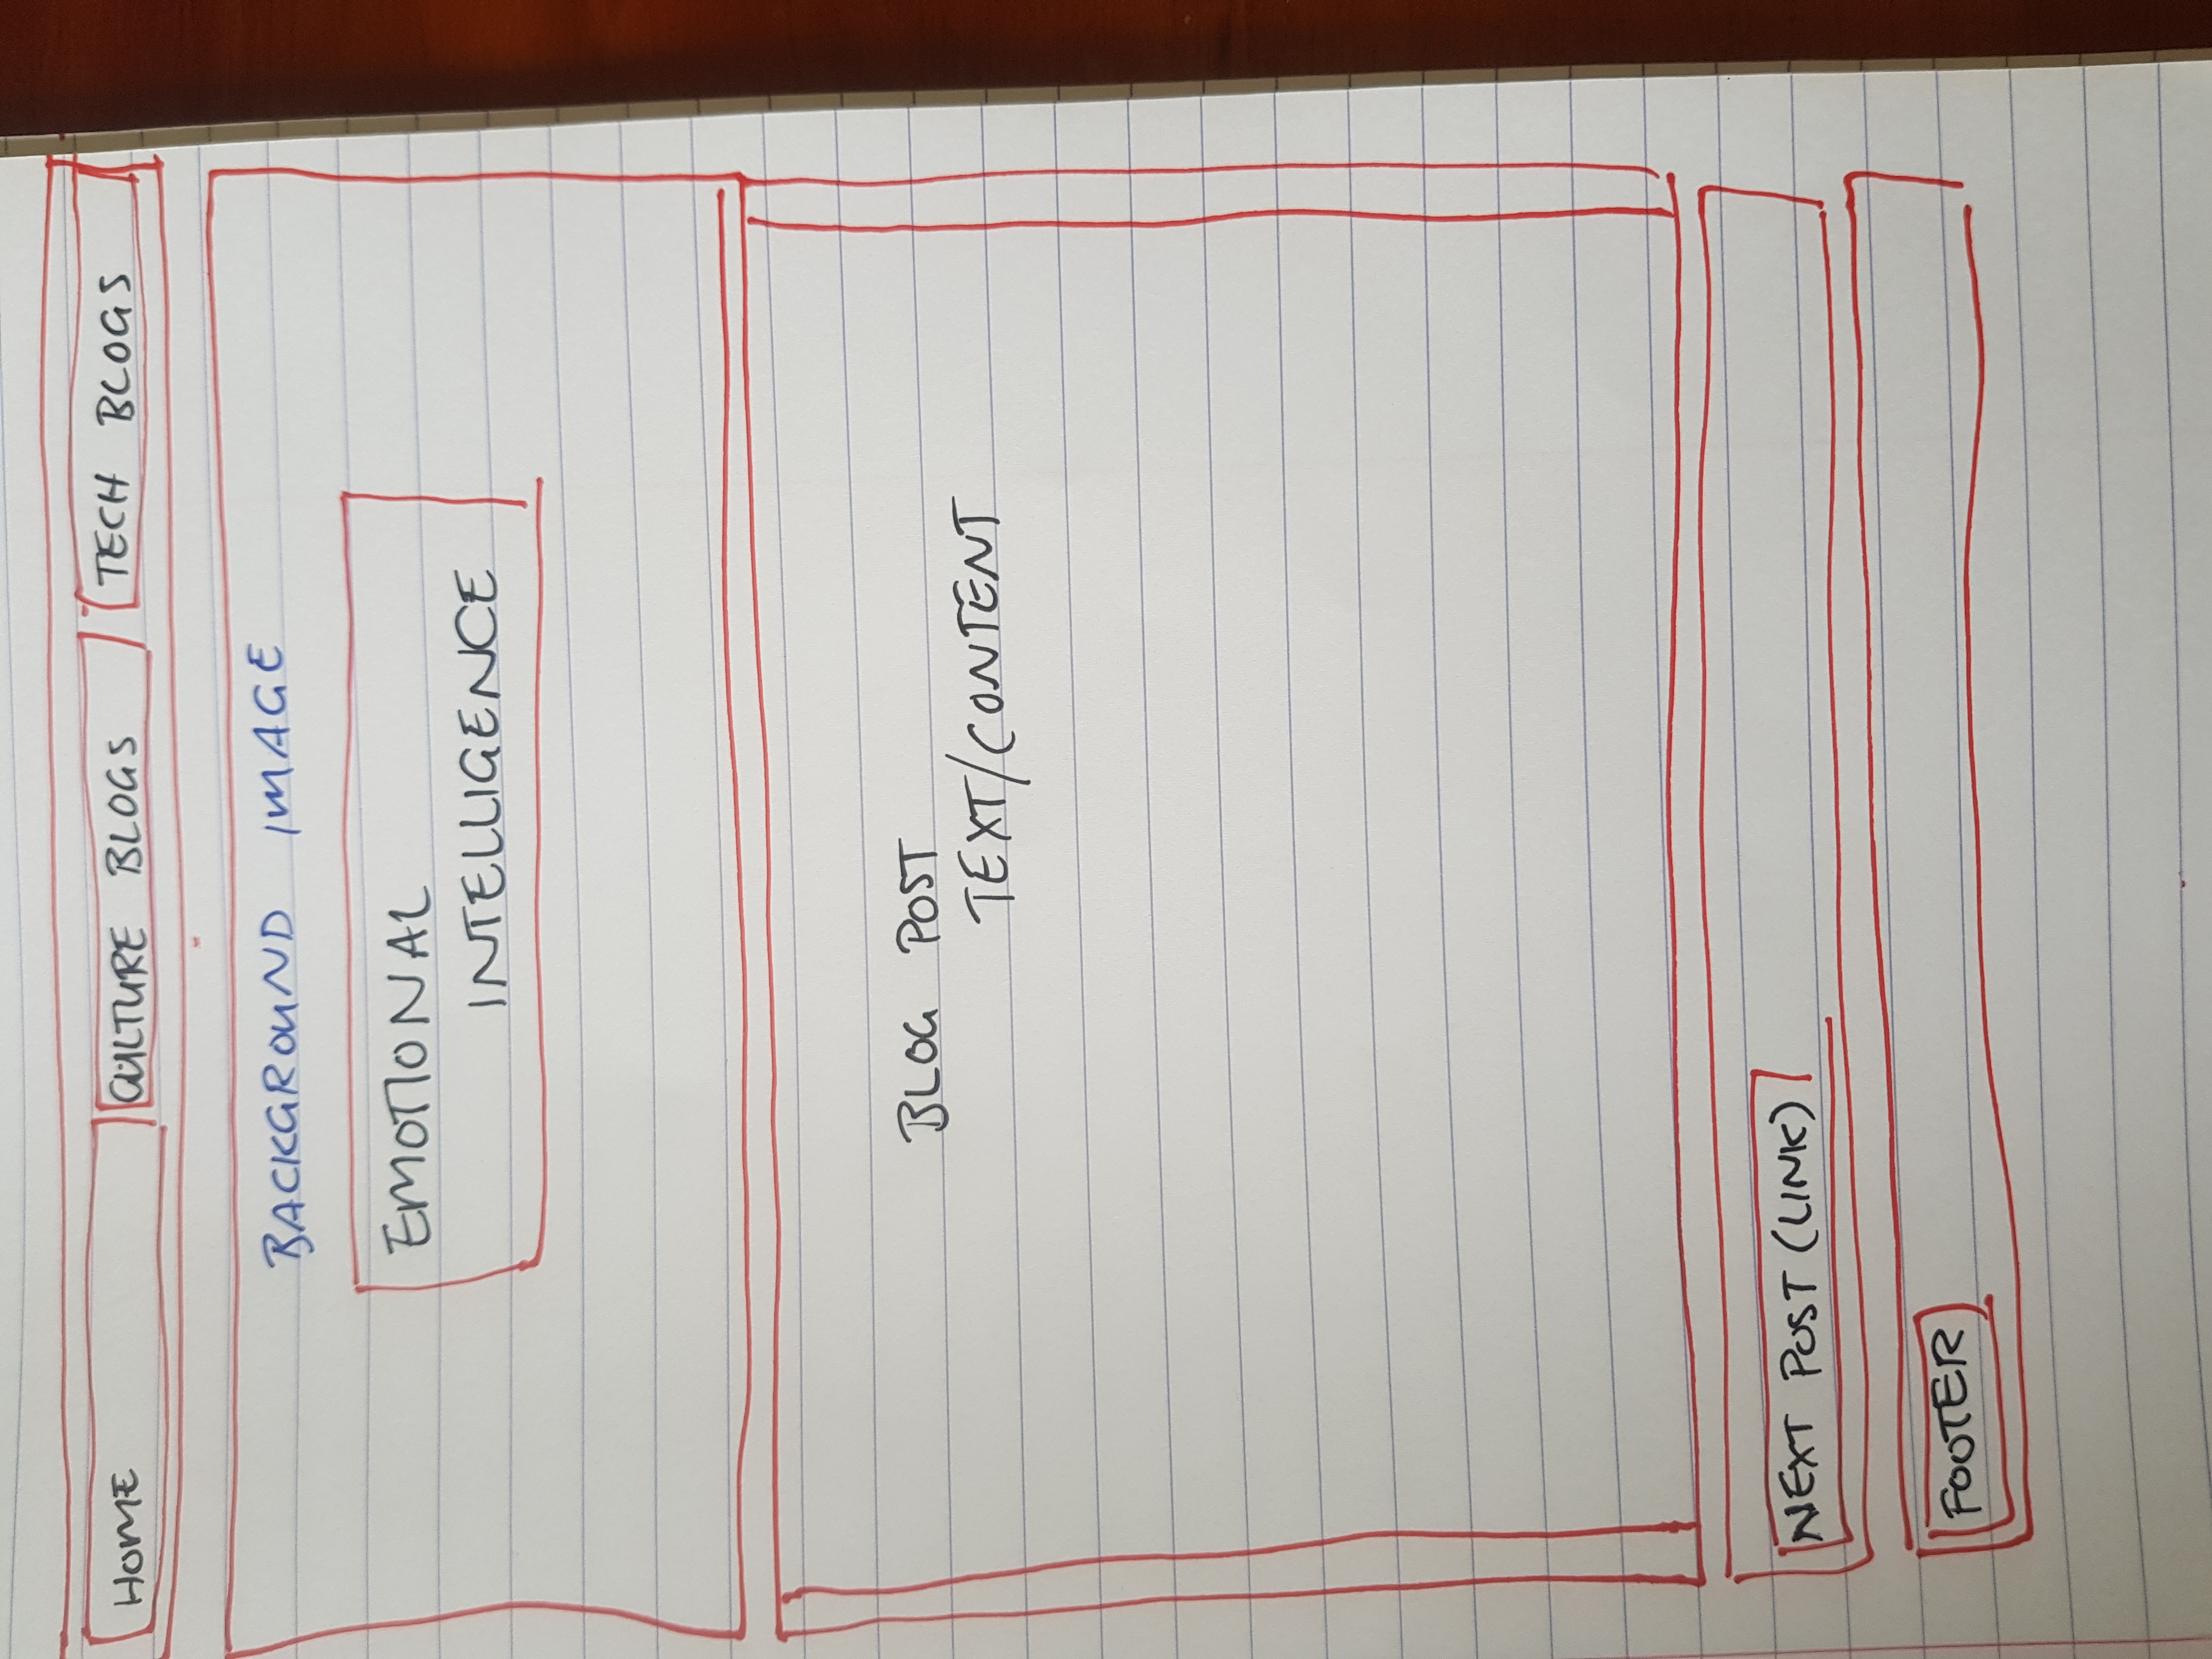 HOME
CULTURE BLOGS
TECH BLOGS
BACKGROUND IMAGE
EMOTIONAL
INTELLIGENCE
BLOG POST
TEXT/CONTENT
NEXT POST (LINK)
FOOTER